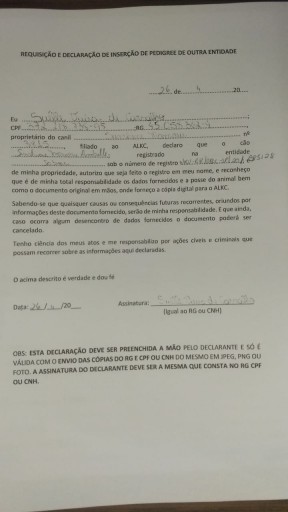 REQUISIÇÃO E DECLARAÇÃO DE INSERÇÃO DE PEDIGREE DE OUTRA ENTIDADE
26 de 4 20
Eu
CPF RG
proprietário do canil nº
filiado ao ALKC, declaro que o cão
registrado na entidade
sob o número de registro
de minha propriedade, autorizo que seja feito o registro em meu nome, e reconheço
que é de minha total responsabilidade os dados fornecidos e a posse do animal bem
como o documento original em mãos, onde forneço a cópia digital para o ALKC.
Sabendo-se que quaisquer causas ou consequências futuras recorrentes, oriundos por
informações deste documento fornecido, serão de minha responsabilidade. E que ainda,
caso ocorra algum desencontro de dados fornecidos o documento poderá ser
cancelado.
Tenho ciência dos meus atos e me responsabilizo por ações civeis e criminais que
possam recorrer sobre as informações aqui declaradas.
O acima descrito é verdade e dou fé
Data: 26/4/20 Assinatura:
(igual ao RG ou CNH)
OBS: ESTA DECLARAÇÃO DEVE SER PREENCHIDA A MÃO PELO DECLARANTE E SÓ É
VÁLIDA COM O ENVIO DAS CÓPIAS DO RG E CPF OU CNH DO MESMO EM JPEG, PNG OU
FOTO. A ASSINATURA DO DECLARANTE DEVE SER A MESMA QUE CONSTA NO RG CPF
OU CNH.